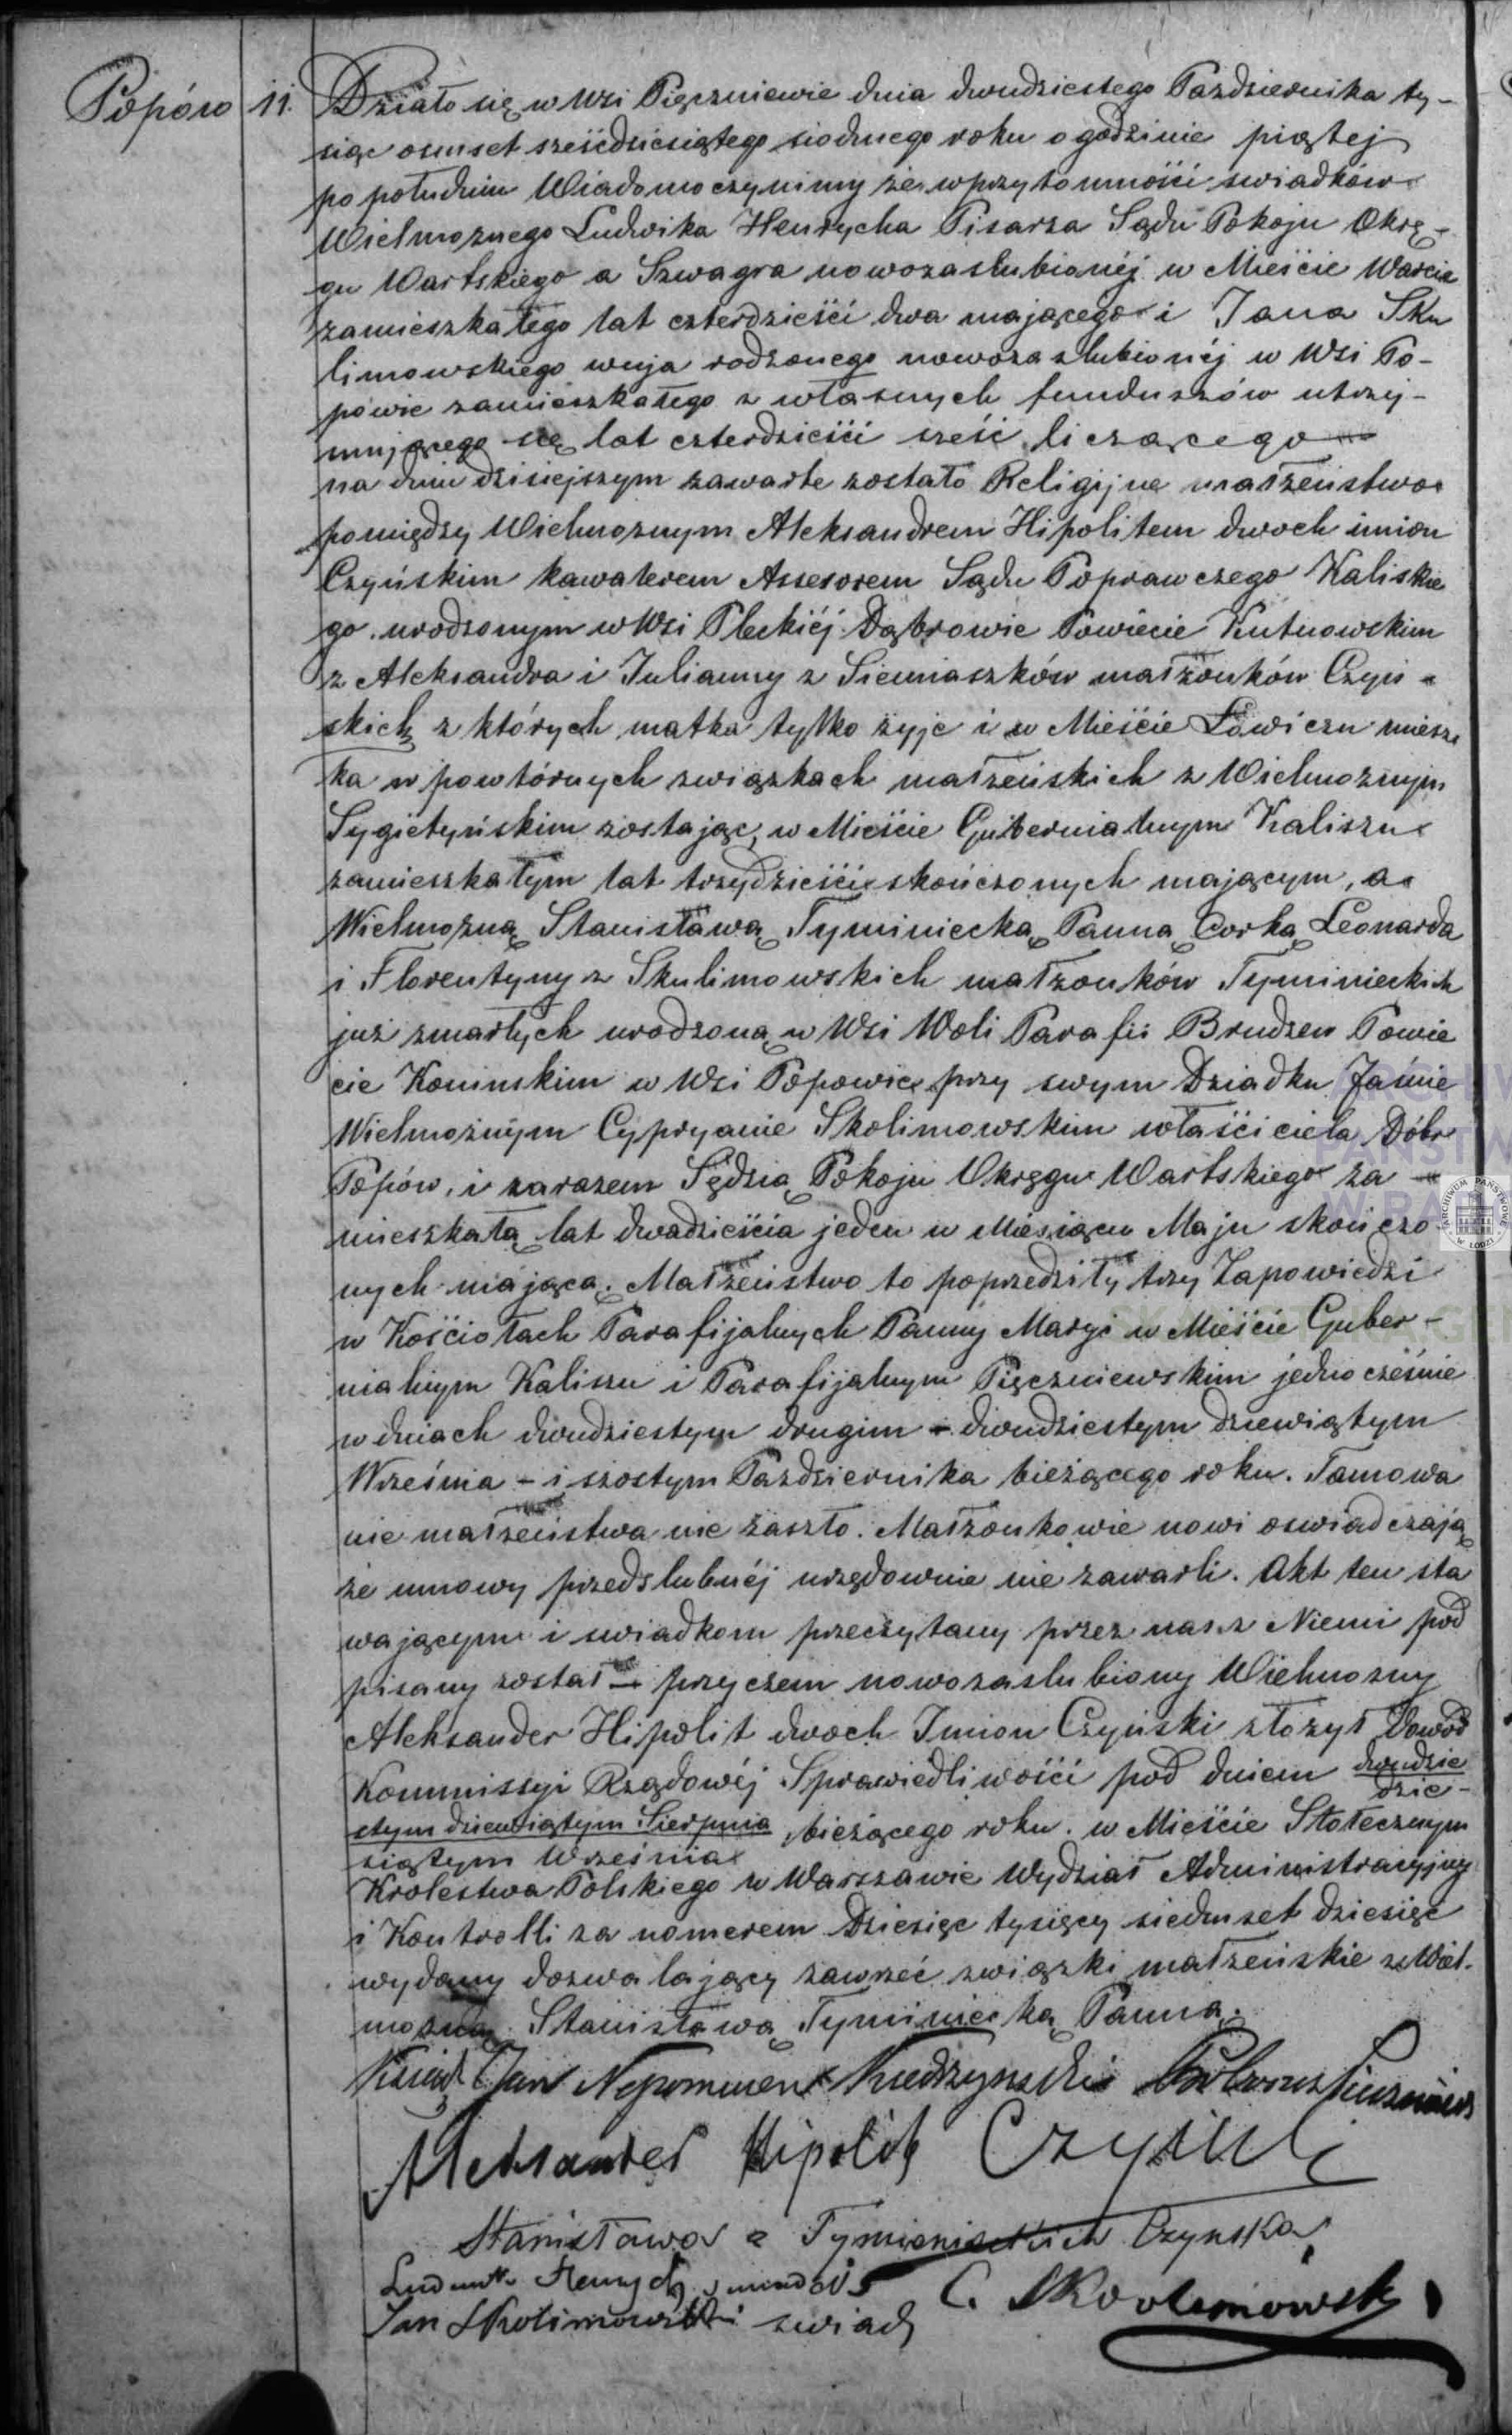 Popów 11. Działo się w Wsi Pięczniewie dnia dwudziestego Pazdziernika ty-
siąc osmset sześćdziesiątego siodmego roku o godzinie piątej
po południu Wiadomo czynimy że w przytomności swiadków
Wielmoznego Ludwika Henrycha Pisarza Sądu Pokoju Okrę-
gu Wartskiego a Szwagra nowozaslubionéj w Mieście Warcie
zamieszkałego lat czterdzieści dwa mającego i Jana Sku
limowskiego wuja rodzonego nowozaslubionéj w Wsi Po-
powie zamieszkałego z własnych funduszów utrzy-
mującego się lat czterdzieści sześć liczącego
na dniu dzisiejszym zawarte zostało Religijne małżeństwo
pomiędzy Wielmoznym Aleksandrem Hipolitem dwoch imion
Czyńskim kawalerem Assesorem Sądu Poprawczego Kaliskie
go urodzonym w Wsi Pleckiéj Dąbrowie Powiecie Kutnowskim
z Aleksandra i Julianny z Siemiaszków małżonków Czyń-
skich z których matka tylko żyje i w Mieście Łowiczu miesz
ka w powtórnych związkach małżeńskich z Wielmoznym
Sygietyńskim zostając, w Mieście Gubernialnym Kaliszu
zamieszkałym lat trzydzieści skończonych mającym, a
Wielmozną Stanisławą Tyminiecką Panną Corką Leonarda
i Florentyny z Skulimowskich małzonków Tyminieckich
już zmarłych urodzoną w Wsi Woli Parafii Brudzew Powie
cie Koninskim w Wsi Popowie przy swym Dziadku Jaśnie
Wielmożnym Cypryanie Skolimowskim właściciela Dóbr
Popów, i zarazem Sędzią Pokoju Okręgu Wartskiego za-
mieszkałą lat dwadzieścia jeden w Miesiącu Maju skończo
nych mającą. Małżeństwo to poprzedziły trzy Zapowiedzi
w Kościołach Parafijalnych Panny Maryi w Mieście Guber-
nialnym Kaliszu i Parafijalnym Pięczniewskim jednocześnie
w dniach dwudziestym drugim - dwudziestym dziewiątym
Września - i szostym Pazdziernika bieżącego roku. Tamowa
nie małżeństwa nie zaszło. Małzonkowie nowi oswiadczają
że umowy przedslubnéj urzędownie nie zawarli. Akt ten sta
wającym i swiadkom przeczytany przez nas z Niemi pod
pisany został - przyczem nowozaslubiony Wielmozny
Aleksander Hipolit dwoch Imion Czyński złożył Dowód
Kommissyi Rządowéj Sprawiedliwości pod dniem dwudzie
dzie-
stym dziewiątym Sierpnia bieżącego roku. w Mieście Stołecznym
siątym Września
Krolestwa Polskiego w Warszawie Wydział Administracyjny
i Kontrolli za nomerem Dziesięc tysięcy siedmset dziesięć
wydany dozwalający zawrzeć związki małżeńskie z Wiel-
mozną Stanisławą Tyminiecką Panną.
Ksiądz Jan Nepomucen
Aleksander Hipolit Czyński
Stanisława z Tymienieckich Czyńska
Ludwik Henrych swiadek C. Skoolimowski
Jan Skolimowski swiad
ARCHIWUM PAŃSTWOWE W ŁODZI